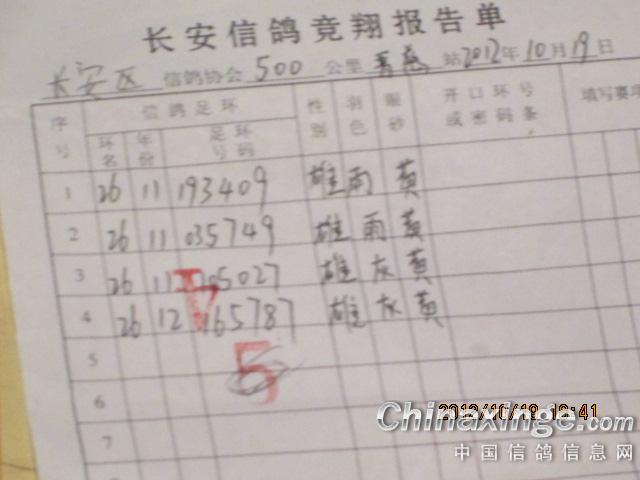 长安信鸽竞翔报告单
长安区 信鸽协会 500 公里 站2012年10月19日
序号 信鸽足环 性别 羽色 眼砂 开口环号或密码条 填写赛项
环名 年份 足环号码
1 26 11 193409 雄 雨 黄
2 26 11 035749 雄 雨 黄
3 26 11 05027 雄 灰 黄
4 26 12 165787 雄 灰 黄
5
6
7
5
Chinaxinge.com
中国信鸽信息网